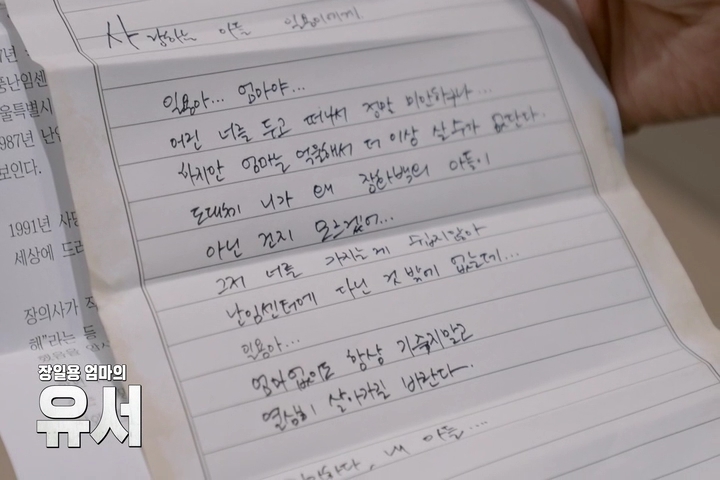 사랑하는 아들 일용이에게
일용아... 엄마야...
어린 너를 두고 떠나서 정말 미안하구나...
하지만 엄마는 억울해서 더 이상 살수가 없단다.
도대체 니가 왜 장한백의 아들이
아닌 건지 모르겠어...
그저 너를 가지는게 쉽지않아
난임센터에 다닌 것 밖에 없는데...
일용아...
엄마없이도 항상 기죽지말고
열심히 살아가길 바란다.
내 아들....
7년
풍난임센
울특별시
987년 난임
보인다.
1991년 사
세상에 드
장의사가
해"라는 등
장일용 엄마의
유서